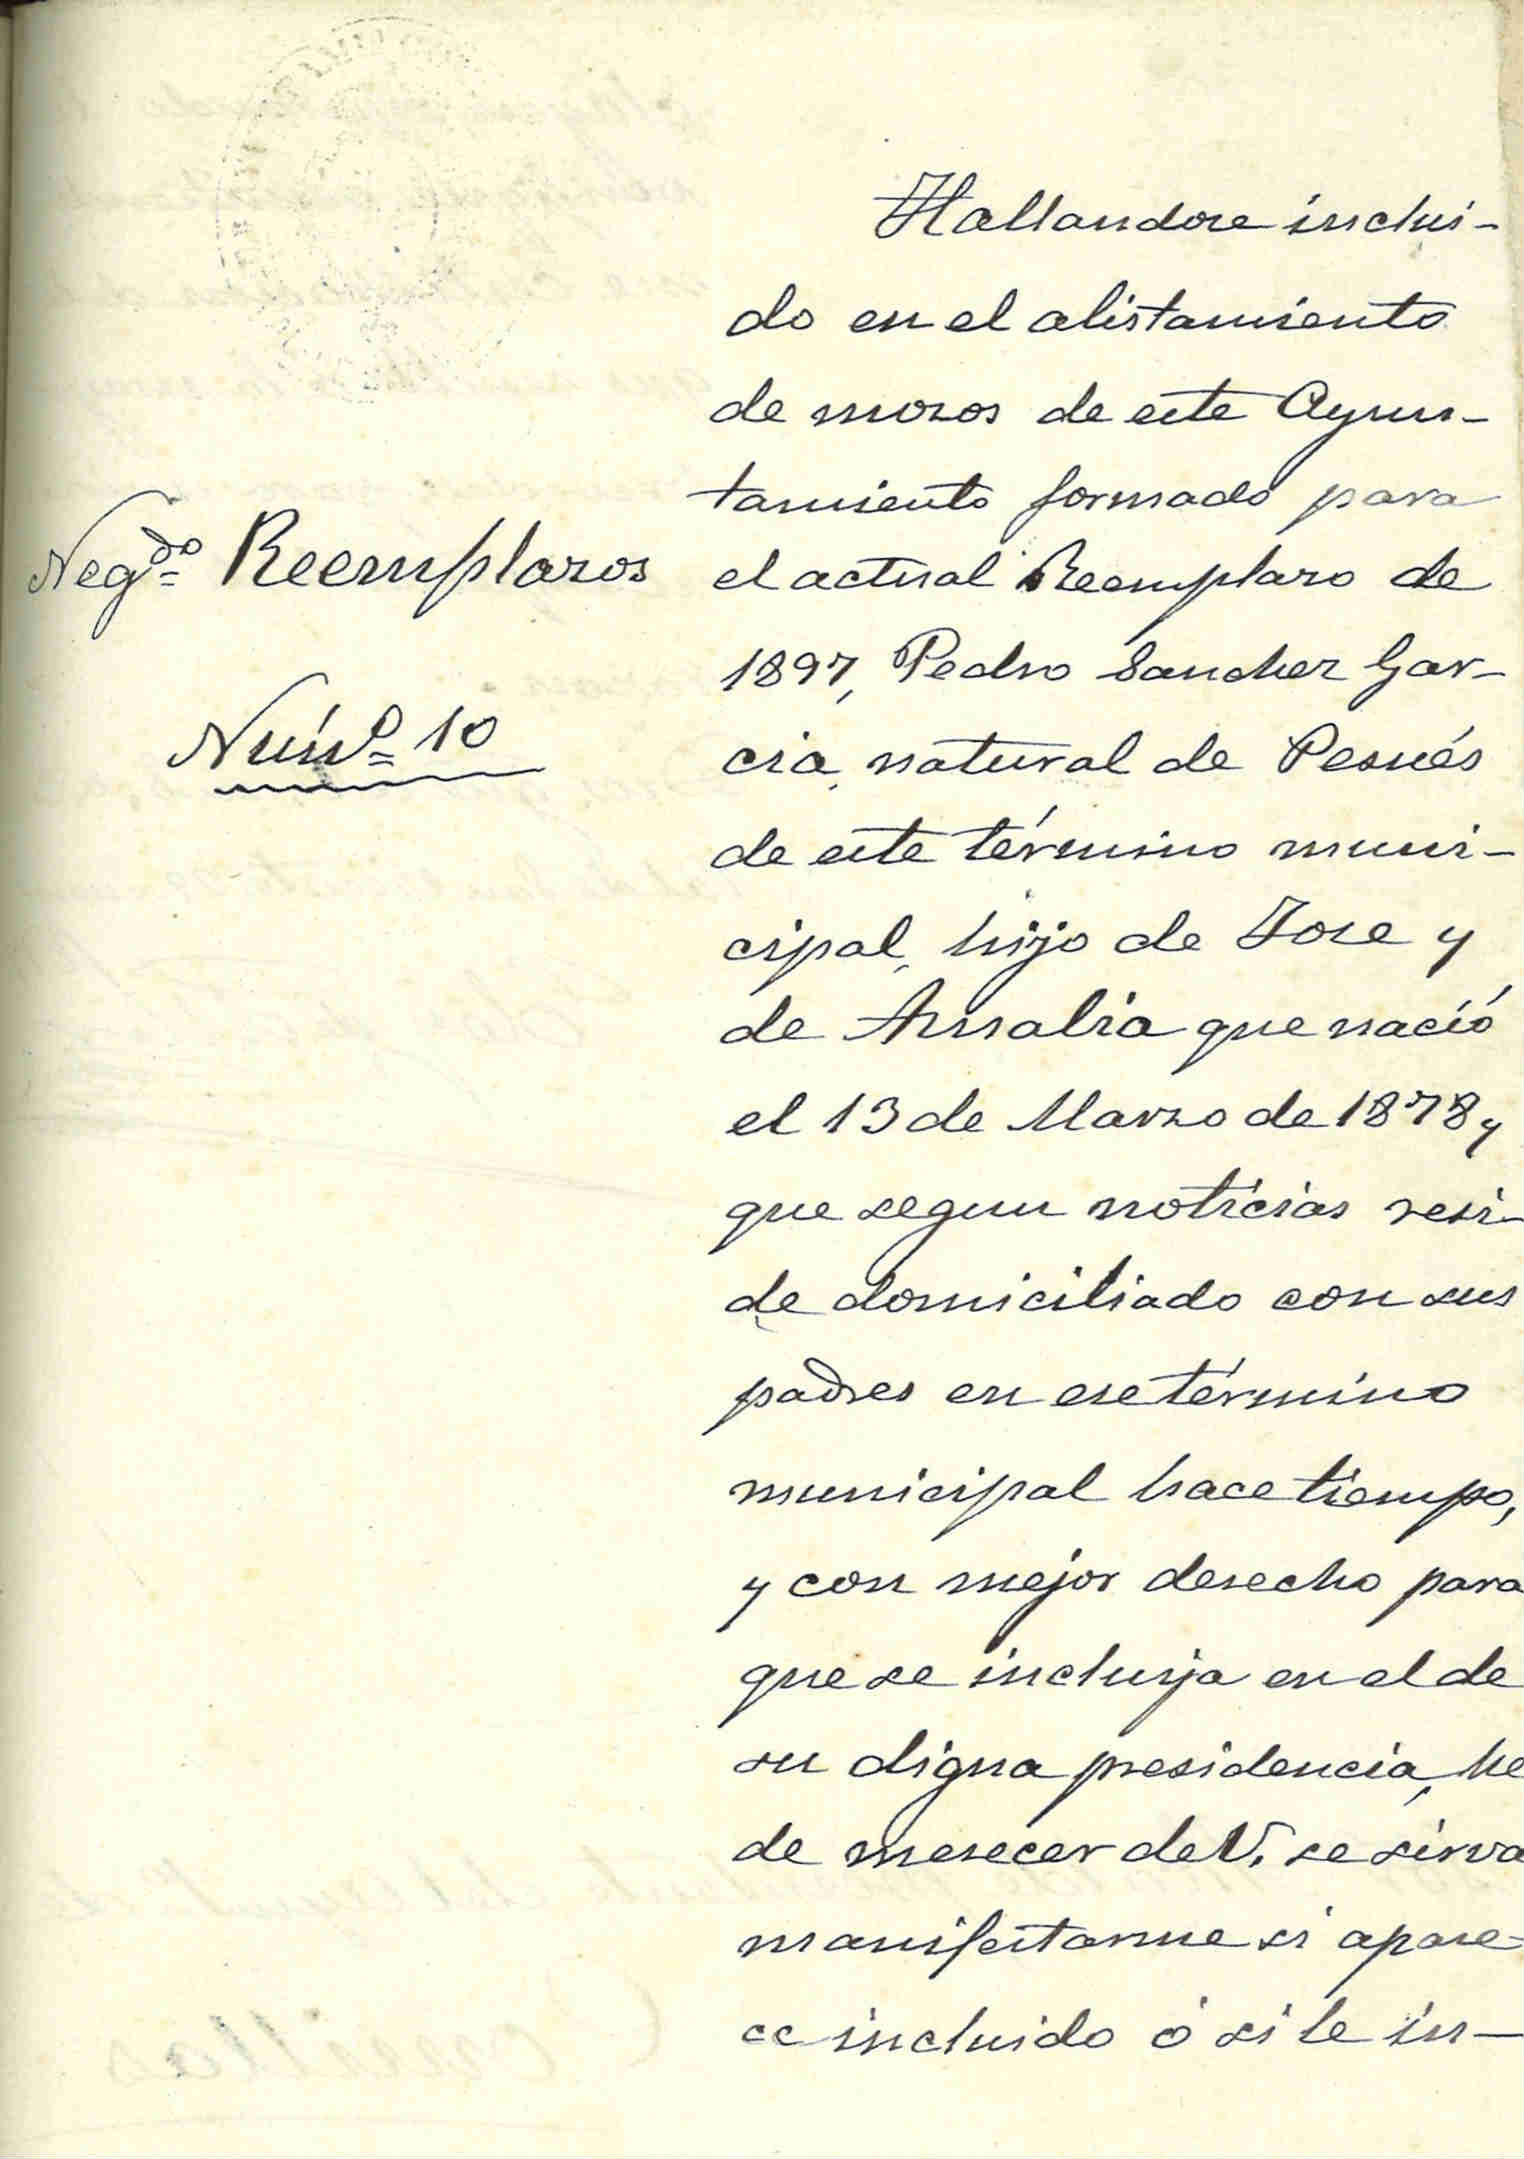 Negdo. Reemplazos
Númo. 10
Hallandose inclui-
do en el alistamiento
de mozos de este Ayun-
tamiento formado para
el actual Reemplazo de
1897, Pedro Sanchez Gar-
cia, natural de Pesués
de este término muni-
cipal, hijo de Jose y
de Amalia que nació
el 13 de Marzo de 1878 y
que segun noticias resi-
de domiciliado con sus
padres en ese término
municipal hace tiempo,
y con mejor derecho para
que se incluija en el de
su digna presidencia, he
de merecer de V. se sirva
manifestarme si apare-
ce incluido ó si le in-